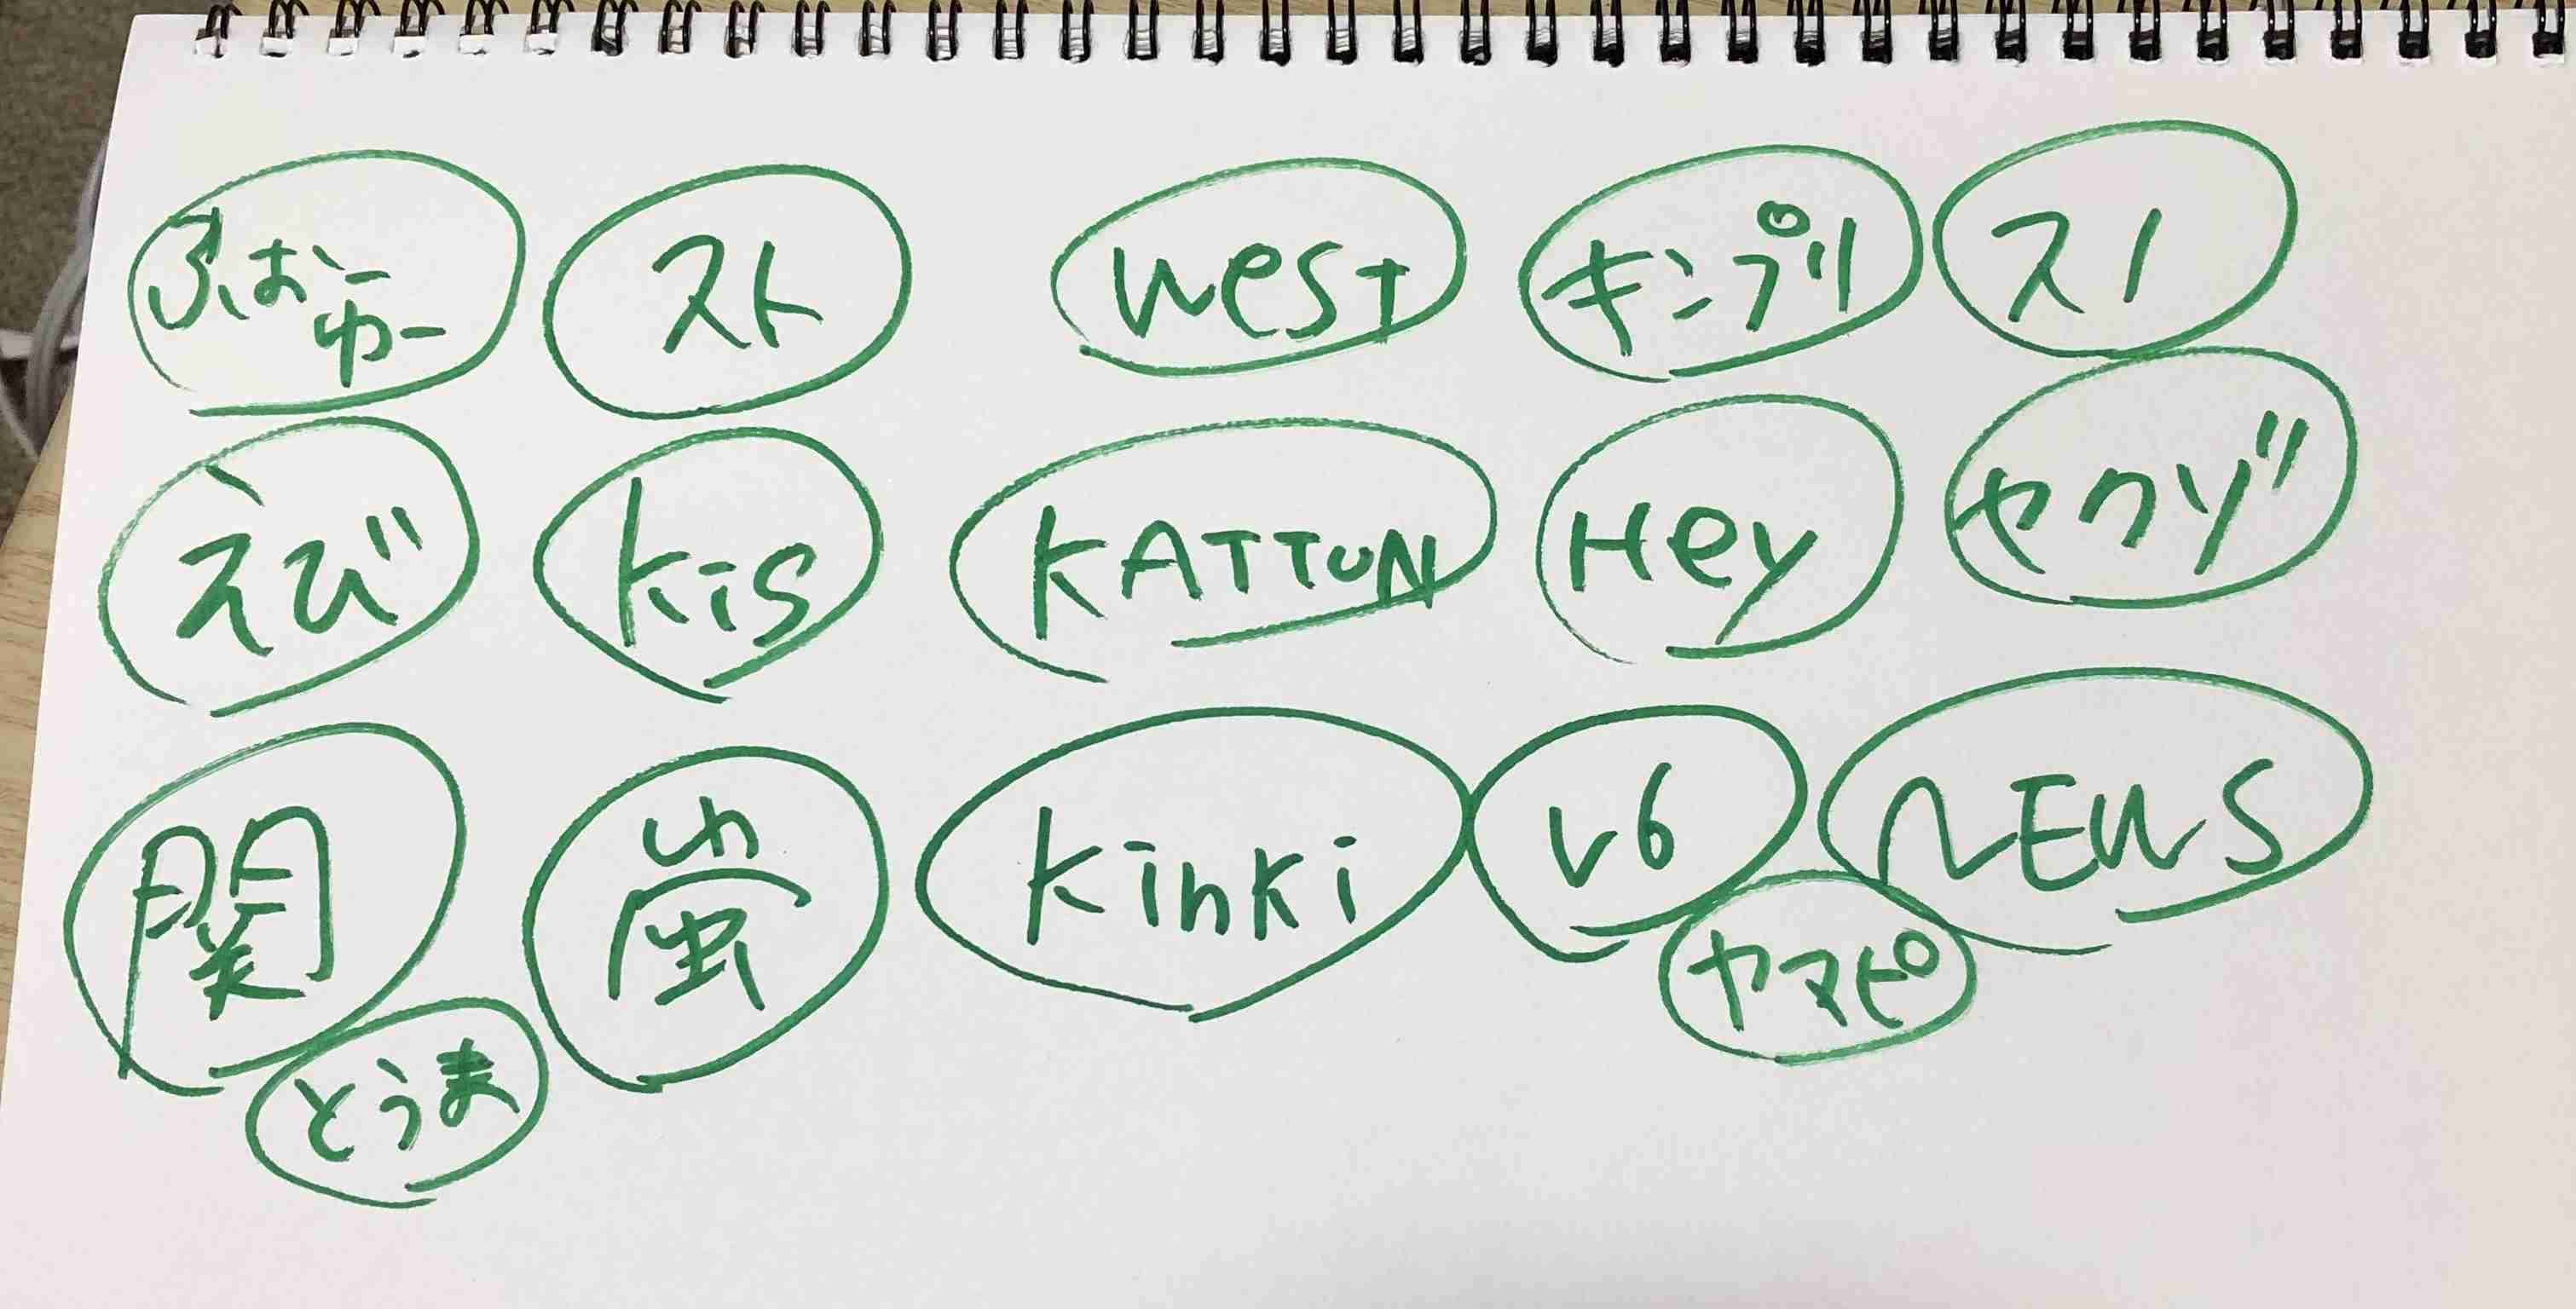 ふぉー
ゆー
スト
West
キンプリ
スノ
えび
kis
KATTUN
Hey
セクゾ
関
嵐
kinki
V6
NEWS
ヤマピ
とうま